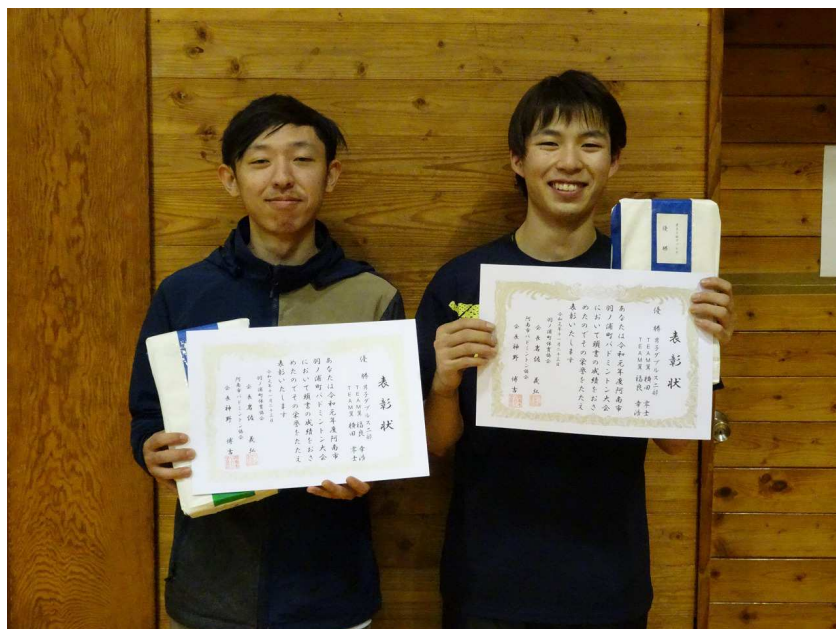 表彰状
優勝 男子ダブルス二部
TEAM翼 福良 幸浩
TEAM翼 横田 常士
あなたは令和元年度阿南市
羽ノ浦町バドミントン大会
において頭書の成績をおさ
めたのでその栄誉をたたえ
表彰いたします
羽ノ浦町体育協会
会長
阿南市バドミントン協会
会長 神野 博吉
表彰状
優勝 男子ダブルス二部
TEAM翼 横田 常士
TEAM翼 福良 幸浩
あなたは令和元年度阿南市
羽ノ浦町バドミントン大会
において頭書の成績をおさ
めたのでその栄誉をたたえ
表彰いたします
羽ノ浦町体育協会
会長
阿南市バドミントン協会
会長 神野 博吉
優勝